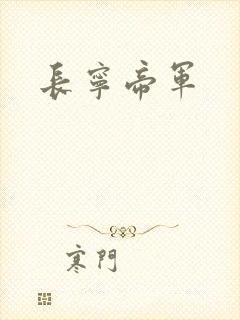 長寧帝軍
寒門